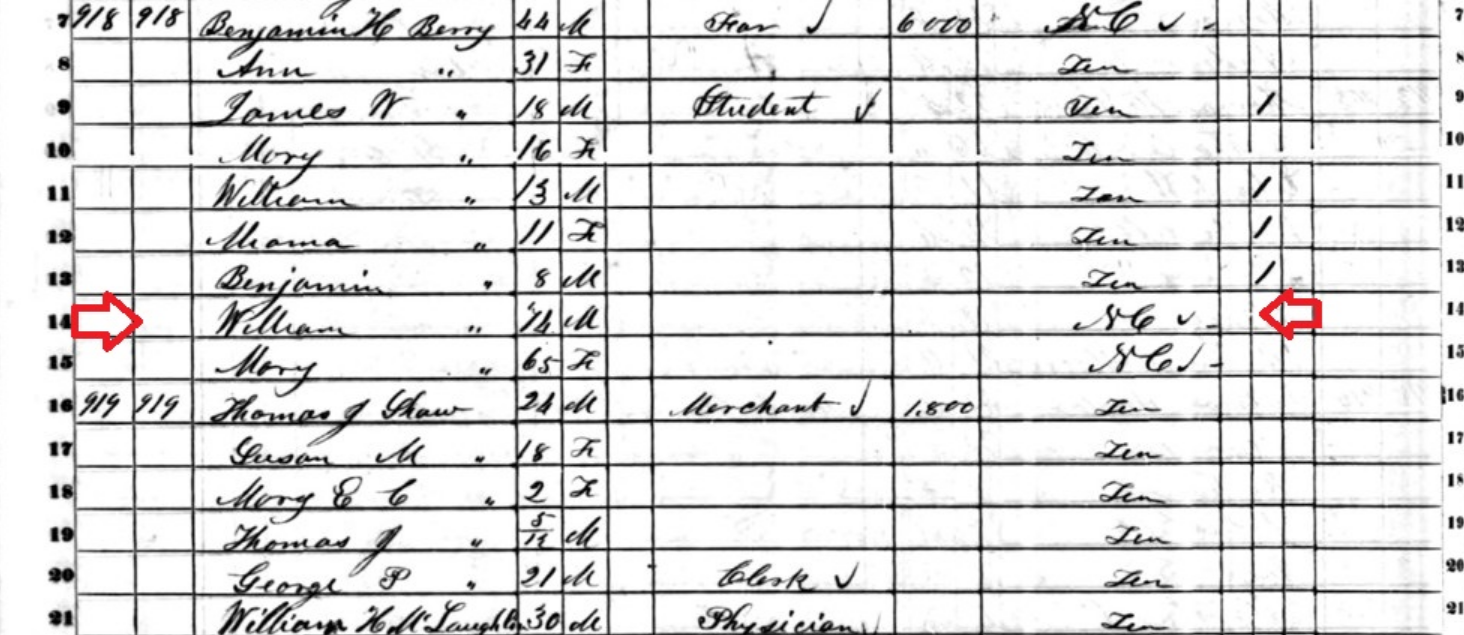 7 918 918 Benjamin H Berry 44 M Far ✓ 6000 NC ✓ - 7
8 Ann " 31 F Ten 8
9 James W " 18 M Student ✓ Ten 1 9
10 Mary " 16 F Ten 10
11 William " 13 M Ten 1 11
12 " 11 F Ten 1 12
13 Benjamin " 8 M Ten 1 13
14 William " 74 M NC ✓ - 14
15 Mary " 65 F NC ✓ - 15
16 919 919 Thomas J Shaw 24 M Merchant ✓ 1.800 Ten 16
17 Susan M " 18 F Ten 17
18 Mary E C " 2 F Ten 18
19 Thomas J " 5/12 M Ten 19
20 George P " 21 M Clerk ✓ Ten 20
21 William H McLaughlin 30 M Physician ✓ Ten 21